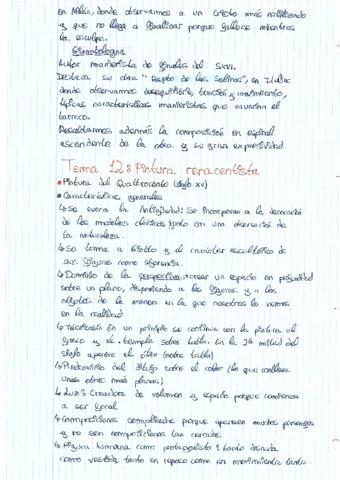 en Milán, donde observamos a un Cristo más estilizado
y que no llega a finalizar porque fallece mientras
la esculpe.
Giambologna
Autor manierista de finales del S.XVI.
Destaca su obra "Rapto de las sabinas", en Italia
donde observamos desequilibrio, torsión y movimiento,
típicas características manieristas que anuncian el
barroco.
Resaltamos además la composición en espiral
ascendente de la obra y su gran expresividad.
Tema 12: Pintura renacentista
• Pintura del Quattrocento (siglo XV)
• Características generales
↳ Se evoca la Antigüedad: Se incorporan a la decoración
de los modelos clásicos junto con una observación de
la naturaleza.
↳ Se toma a Giotto y el carácter escultórico de
sus figuras como referencia.
↳ Dominio de la perspectiva, crear un espacio en profundidad
sobre un plano, disponiendo a las figuras y a los
objetos de la manera en la que nosotros lo vemos
en la realidad
↳ Técnicas: En un principio se continúa con la pintura al
fresco y el temple sobre tabla. En la 2ª mitad del
siglo aparece el óleo (sobre tabla)
↳ Predominio del dibujo sobre el color (lo que conlleva
unas obras más planas)
↳ Luz: Creadora de volumen y espacio porque comienza
a ser focal
↳ Composiciones complicadas porque aparecen muchos personajes
y no son composiciones tan cerradas.
↳ Figura humana como protagonista, tanto desnuda
como vestida tanto en reposo como en movimiento, tanto